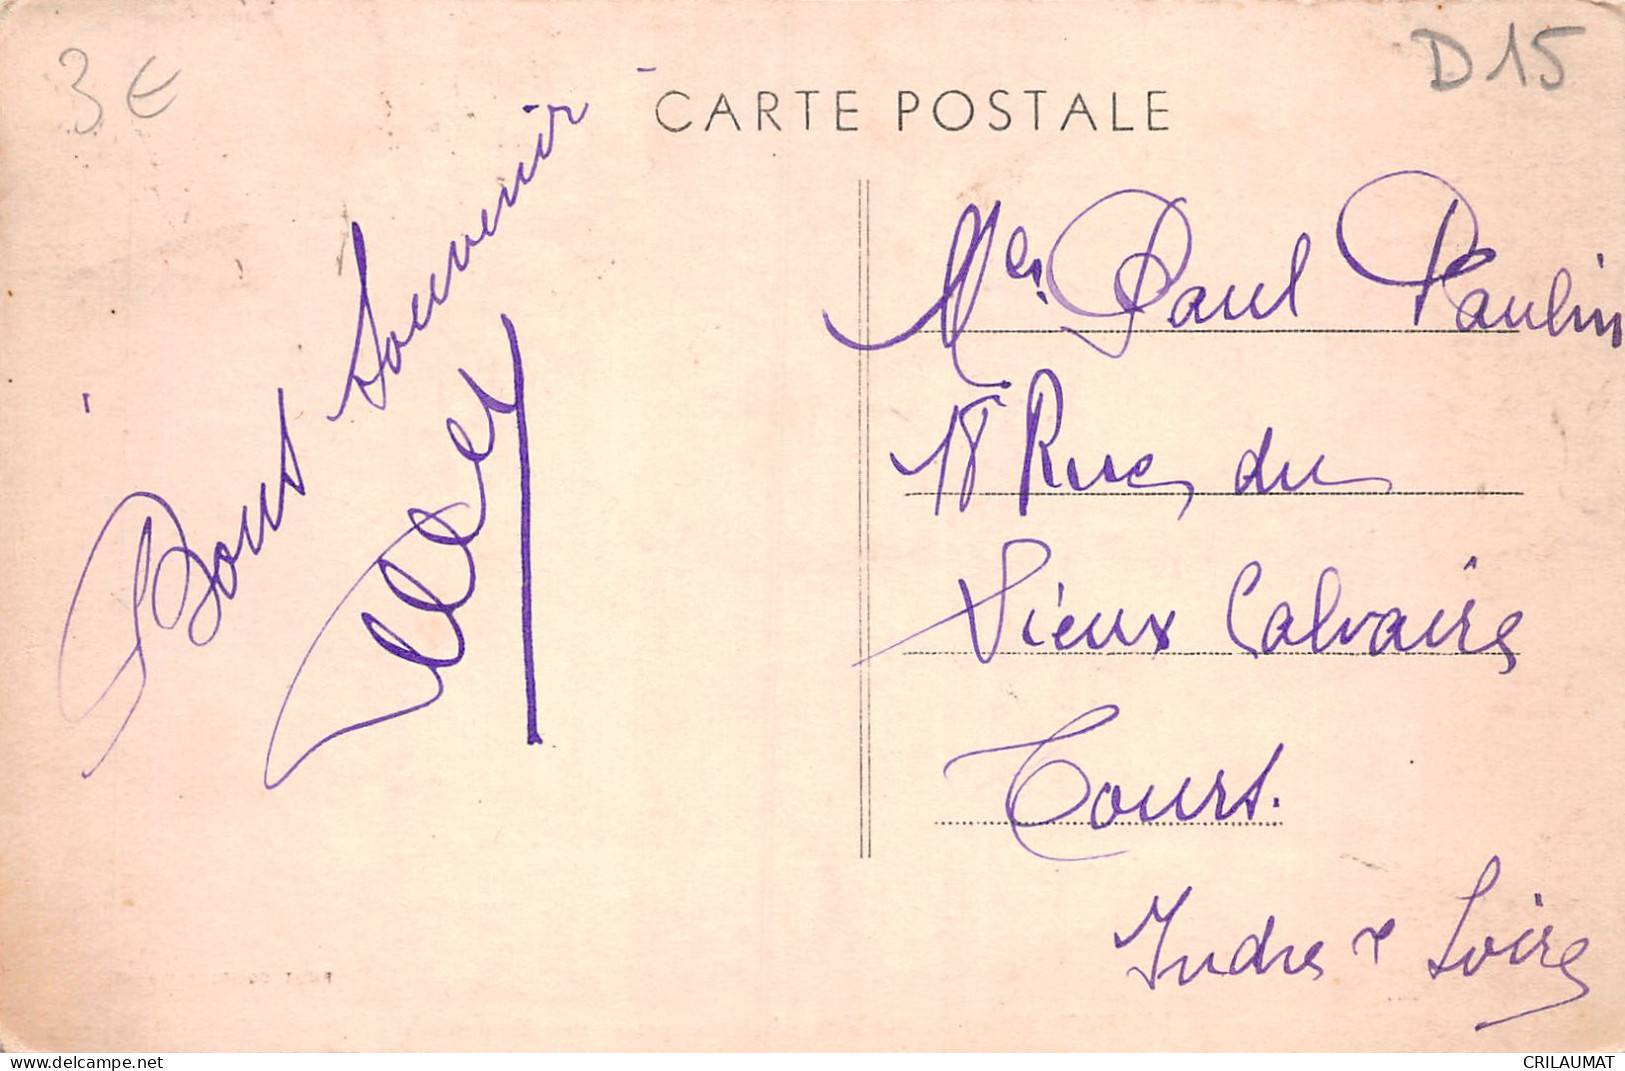 3 €
D15
CARTE POSTALE
Bons Souvenir
Mr. Paul Paulin
18 Rue du
Vieux Calvaire
Tours.
Indre & Loire
www.delcampe.net
CRILAUMAT